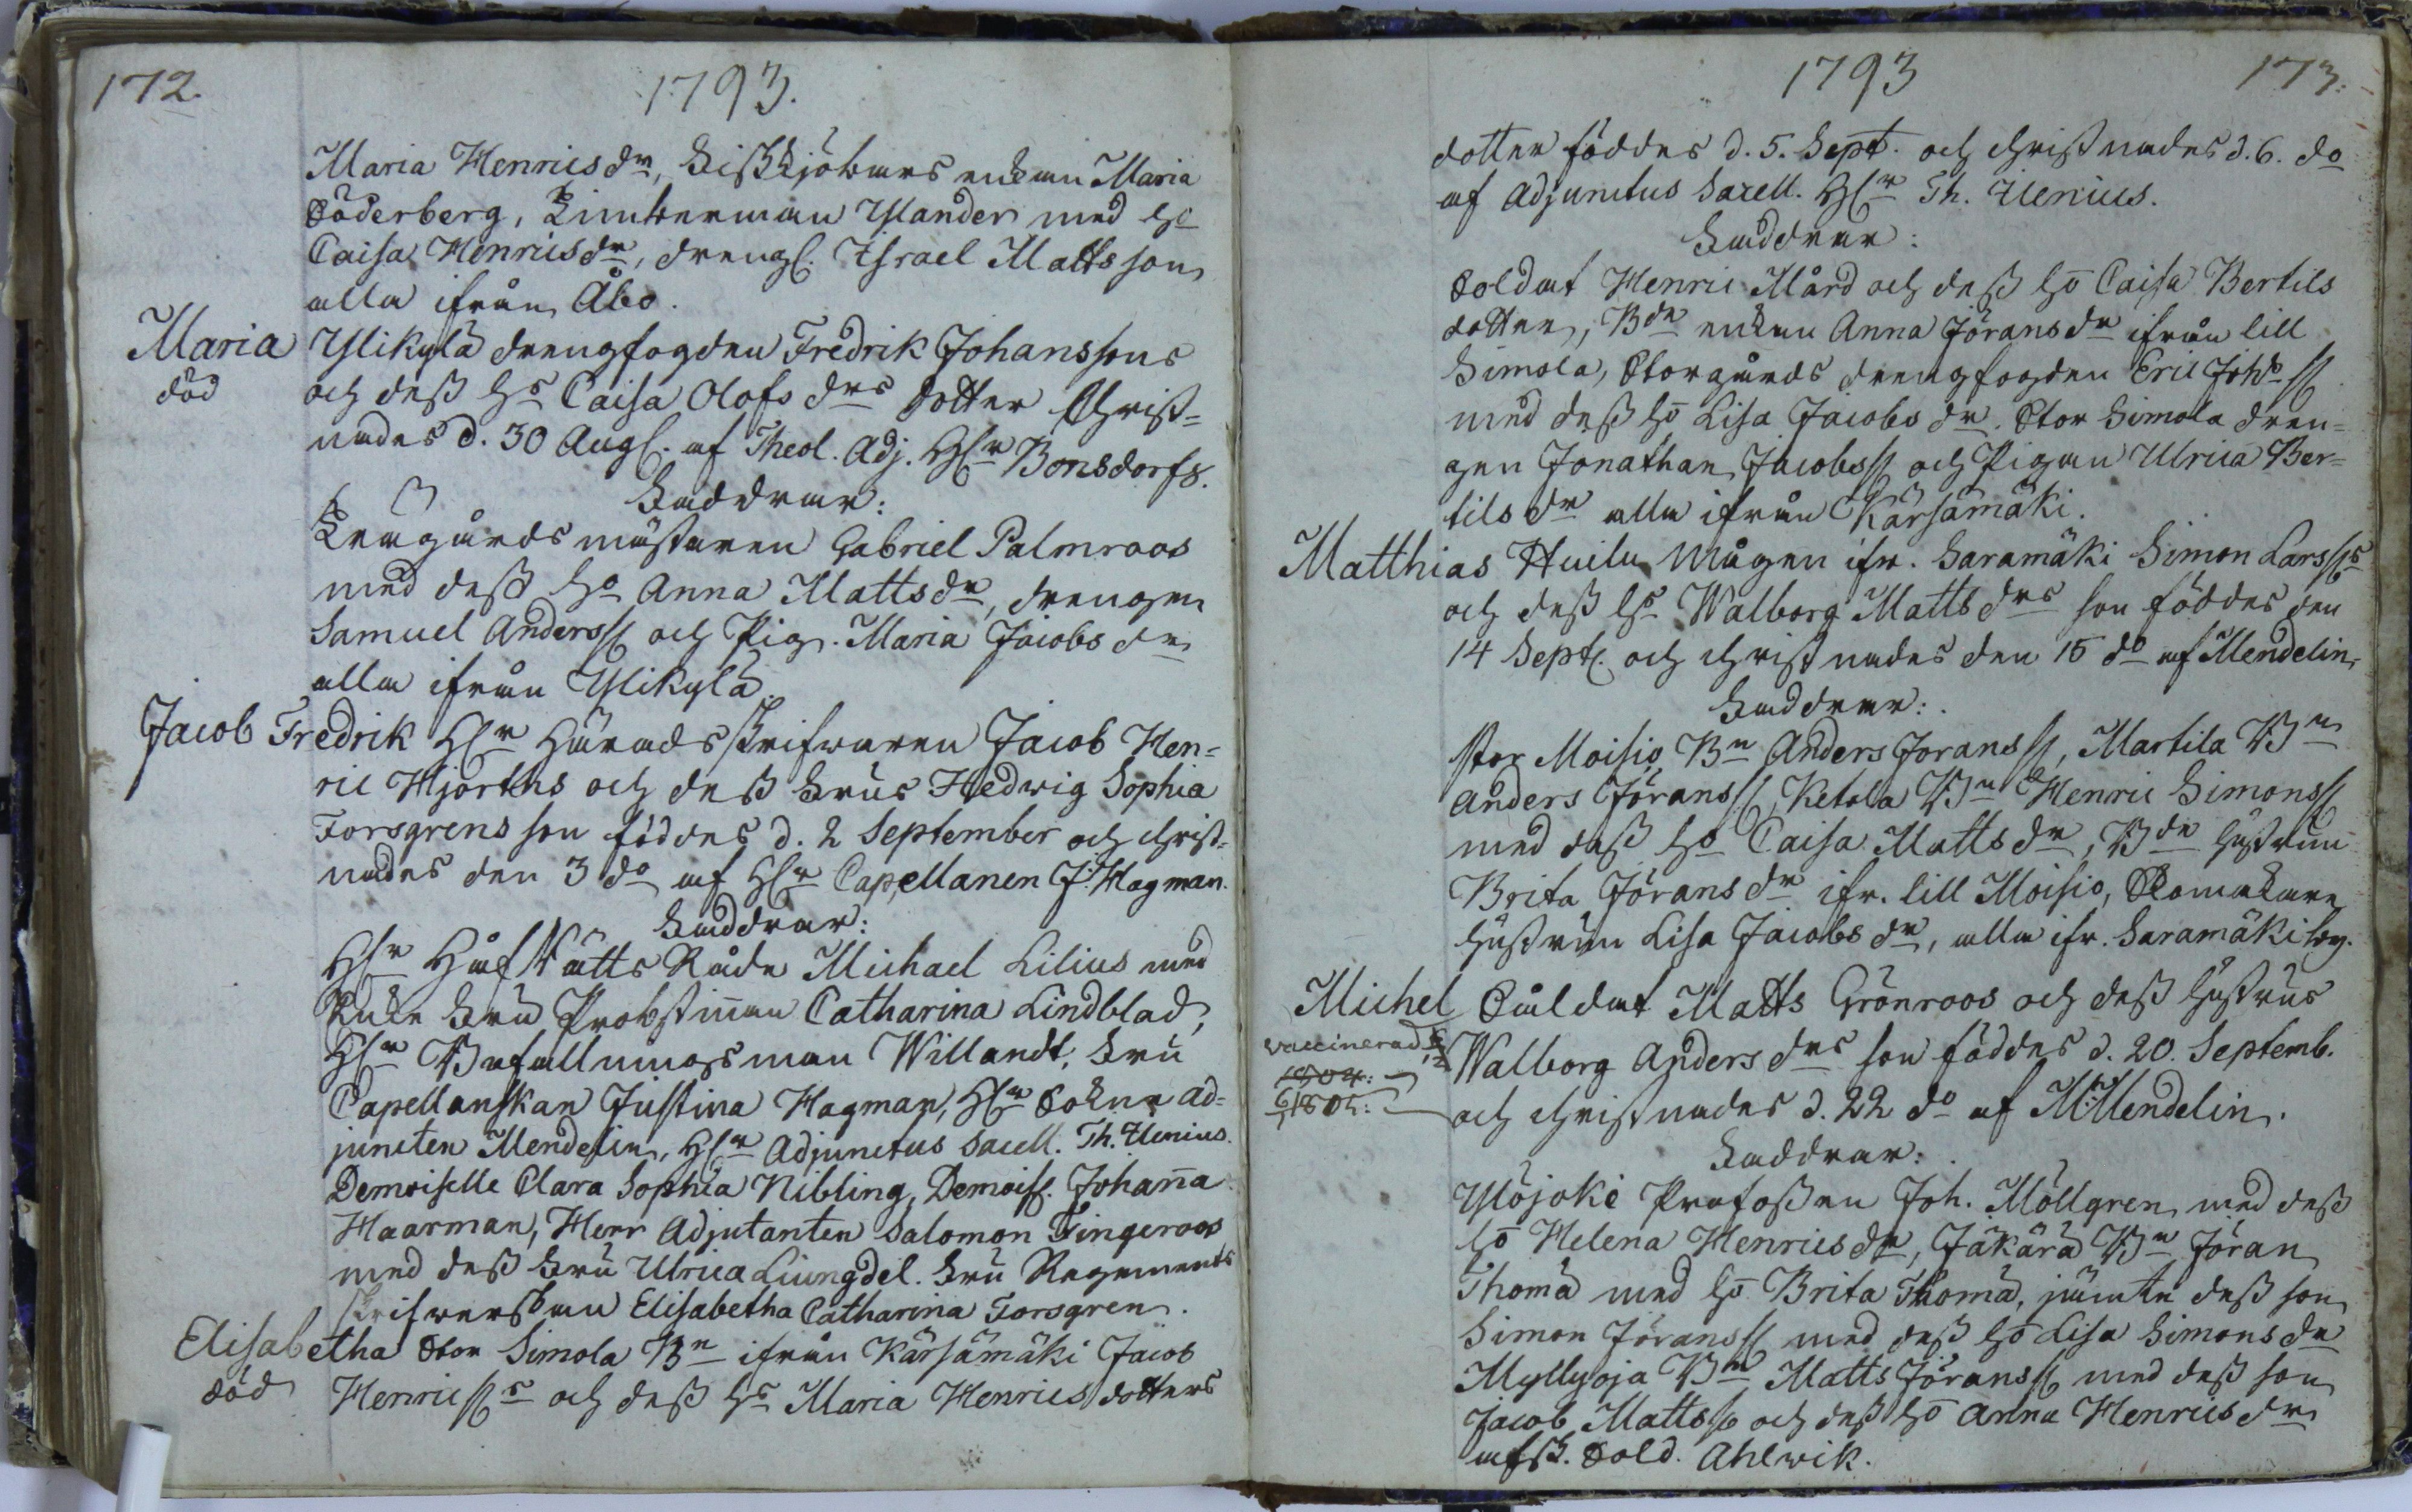 172.
1793.
Maria Henricsdr, Fiskkjörares enkan Maria
Söderberg, Timberman Ylander med ho
Caisa Henricsdr, drengs. Israel Mattsson
alla ifrån Åbo.
Maria Ylikylä drengfogden Fredrik Johanssons
död
och dess hs Caisa Olofs drs dotter Christ=
nades d. 30 Augs. af Theol. Adj. Hr Bonsdorfs.
Faddrar:
Trägårdsmästaren Gabriel Palmroos
med dess ho Anna Mattsdr, drengen
Samuel Anderss och Pig. Maria Jacobs dr
alla ifrån Ylikylä.
Jacob Fredrik Hr Häradsskrifvaren Jacob Hen=
ric Hjorths och dess Frus Hedwig Sophia
Forsgrens son föddes d. 2 September och christ=
nades den 3 do af Hr Capellanen J. Hagman.
Faddrar:
Hr Håfrätts Råde Michael Lilius med
Enke Fru Probstinnan Catharina Lindblad,
Hr Befallningsman Willandt, Fru
Capellanskan Justina Hagman, Hr Sokne Ad=
juncten Mendelin, Hr Adjunctus Sacell. Th. Ilenius.
Demoiselle Clara Sophia Nibling, Demois. Johanna
Haarman, Herr Adjutanten Salomon Fingeroos
med dess Fru Ulrica Liungdel. Fru Regements
skrifverskan Elisabetha Catharina Forsgren.
Elisabetha Stor Simola Bn ifrån Kärsämäki Jacob
död
Henricss och dess hs Maria Henrics dotters
1793
173.
dotter föddes d. 5. Sept. och christnades d. 6. do
af Adjunctus Sacell. Hr Th. Ilenius.
Faddrar:
Soldat Henric Mård och dess ho Caisa Bertils
dotter, Bde enkan Anna Jörans dr ifrån lill
Simola, Storgårds drengfogden Eric Johs
med dess ho Lisa Jacobs dr. Stor Simola dren=
gen Jonathan Jacobss och Pigan Ulrica Ber=
tils dr alla ifrån Kärsämäki.
Matthias Huilu Mågen ifr. Saramäki Simon Larss
och dess hs Walborg Matts drs son föddes den
14 Sept. och christnades den 15 do af Mendelin.
Faddrar:
Stor Moisio Bn Anders Joranss, Martila Bn
Anders Jöranss, Ketola Bn Henric Simonss
med dess ho Caisa Matts dr, Bde hustrun
Brita Jörans dr ifr. lill Moisio, Skomakare
hustrun Lisa Jacobs dr, alla ifr. Saramäki by.
Michel Såldat Matts Grönroos och dess hustrus
vaccinerad
1804:
1805:
Walborg Anders drs son föddes d. 20. Septemb.
och christnades d. 22 do af M: Mendelin.
Faddrar:
Yliojoki Profossen Joh. Möllgren med dess
ho Helena Henricsdr, Jäkärä Bn Jöran
Thomä med ho Brita Thomä, jämte dess son
Simon Jöranss med dess ho Lisa Simons dr
Myllyoja Bn Matts Jöranss med dess son
Jacob Mattss och dess ho Anna Henrics dr
afsk. Sold. Ahlwik.